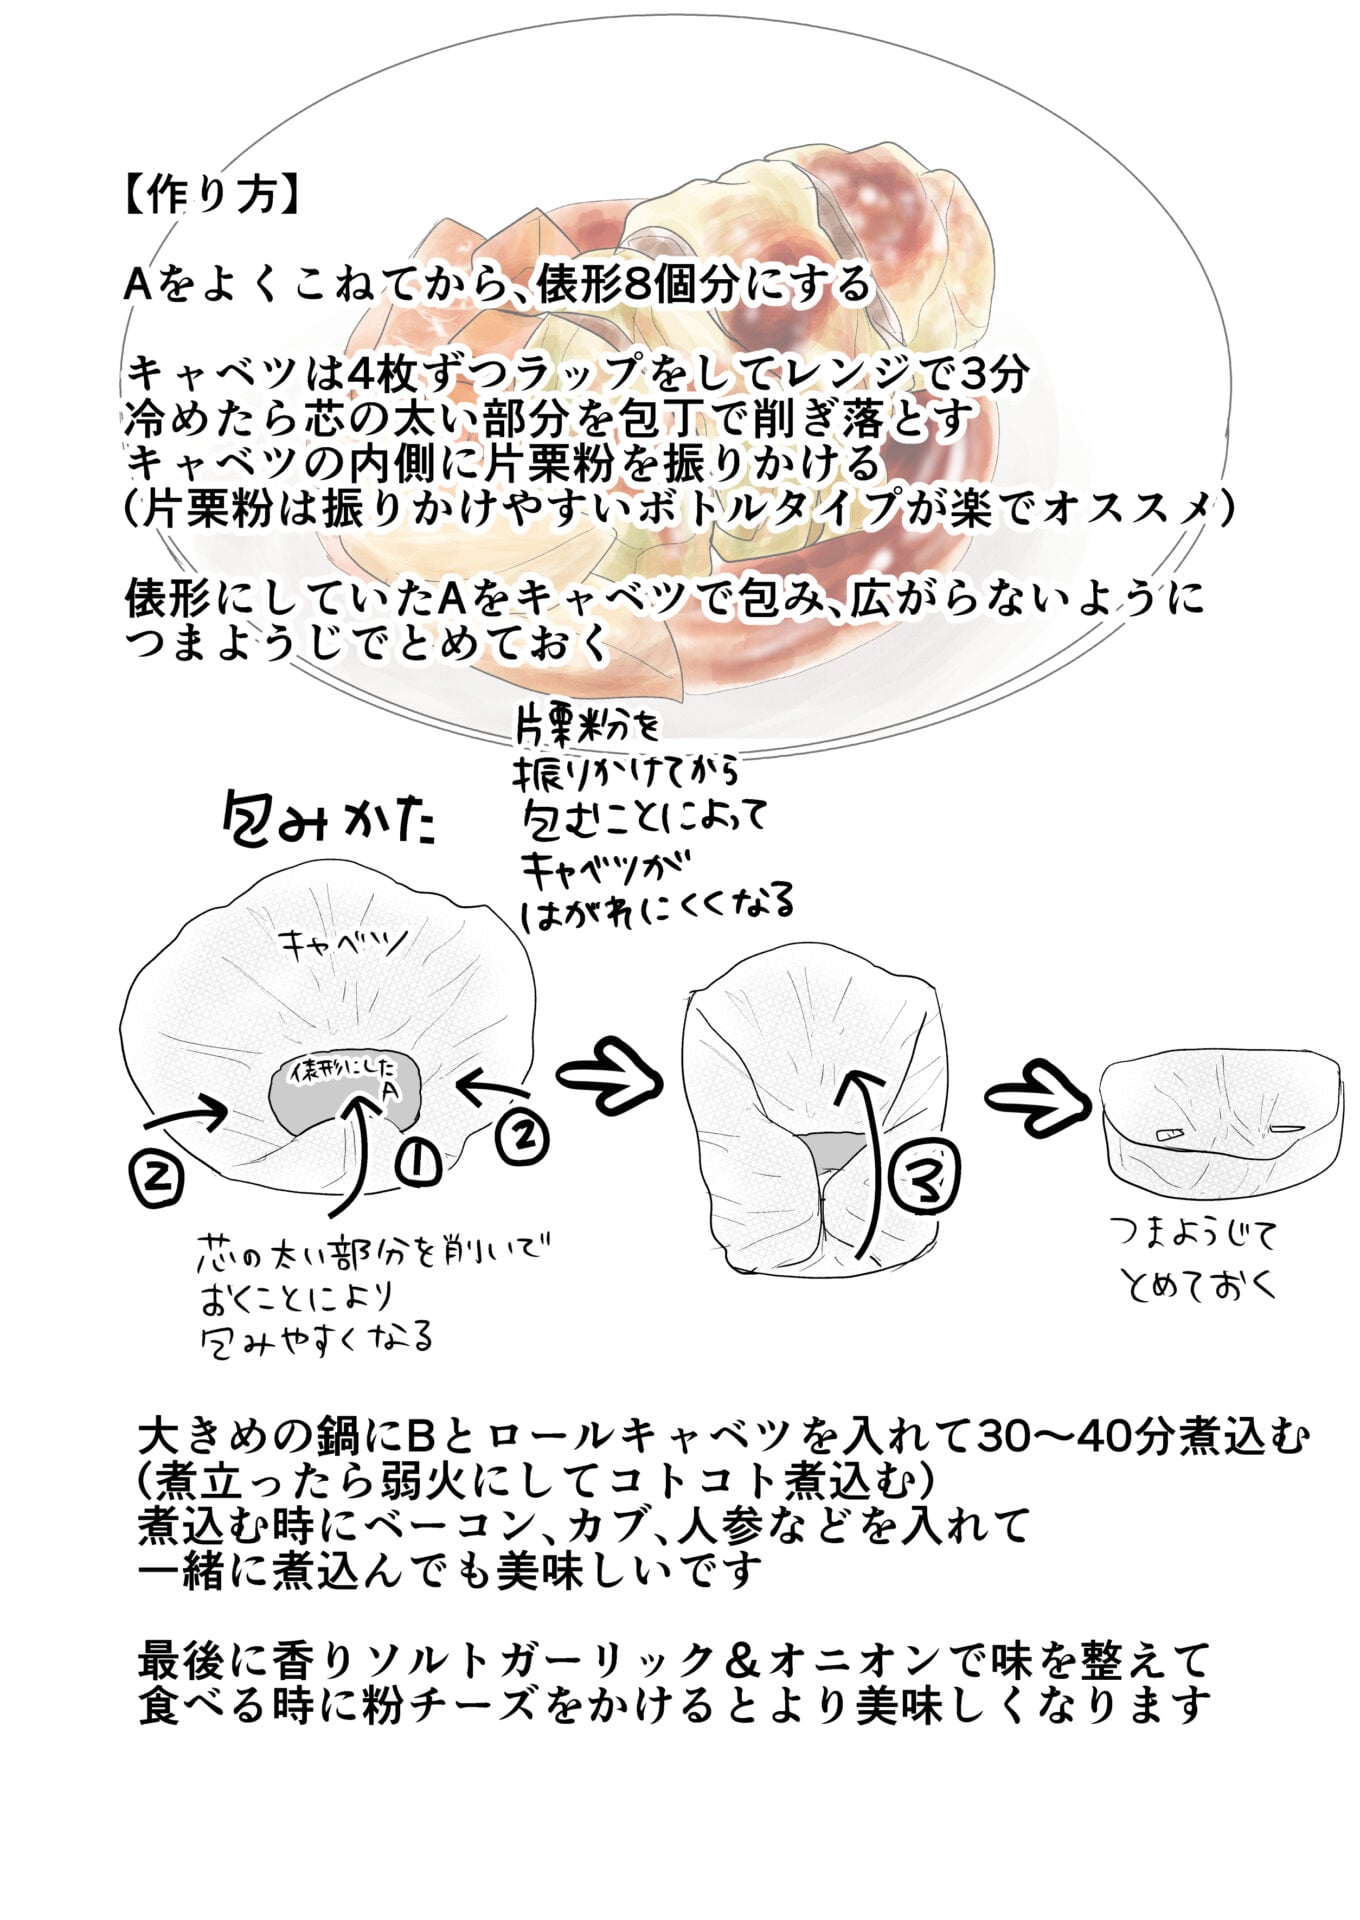 【作り方】
Aをよくこねてから、俵形8個分にする
キャベツは4枚ずつラップをしてレンジで3分
冷めたら芯の太い部分を包丁で削ぎ落とす
キャベツの内側に片栗粉を振りかける
(片栗粉は振りかけやすいボトルタイプが楽でオススメ)
俵形にしていたAをキャベツで包み、広がらないように
つまようじでとめておく
片栗粉を
振りかけてから
包むことによって
キャベツが
はがれにくくなる
包みかた
キャベツ
俵形にした
A
②
①
②
③
芯の太い部分を削いで
おくことにより
包みやすくなる
つまようじで
とめておく
大きめの鍋にBとロールキャベツを入れて30〜40分煮込む
(煮立ったら弱火にしてコトコト煮込む)
煮込む時にベーコン、カブ、人参などを入れて
一緒に煮込んでも美味しいです
最後に香りソルトガーリック&オニオンで味を整えて
食べる時に粉チーズをかけるとより美味しくなります